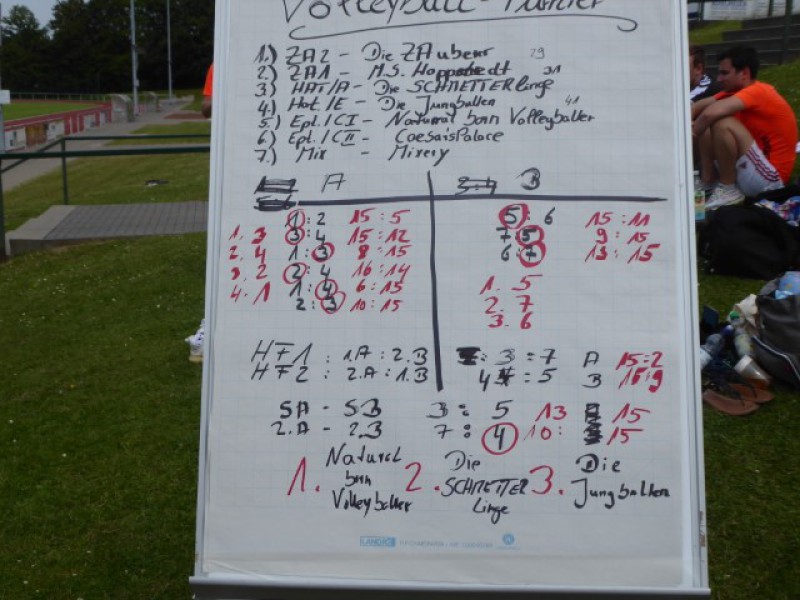 Volleyball-Turnier
1.) ZA2 - Die ZAuberer 29
2.) ZA1 - M.S. Hoppenstedt 31
3.) HAT/A - Die SCHMETTERlinge
4.) Hot./E - Die Jungballen 41
5.) Ept./CI - Natural born Volleyballer
6.) Ept./CII - CaesarsPalace
7.) Mix - Mixery
A B
1:2 15:5 5:6 15:11
1. 3 3:4 15:12 7:5 9:15
2. 4 1:3 8:15 6:7 13:15
3. 2 2:4 16:14
4. 1 1:4 6:15 1. 5
2:3 10:15 2. 7
3. 6
HF1: 1.A : 2.B 3 : 7 A 15:2
HF2: 2.A : 1.B 4 : 5 B 9
SA - SB 3 : 5 13 : 15
2.A - 2.B 7 : 4 10 : 15
1. Natural born Volleyballer 2. Die SCHMETTERlinge 3. Die Jungballen